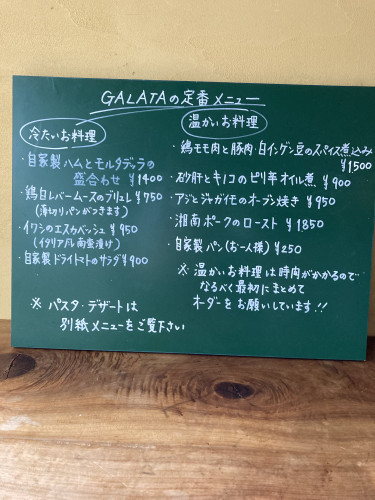 GALATAの定番メニュー
冷たいお料理
・自家製ハムとモルタデッラの
盛合わせ ¥1400
・鶏白レバームースのブリュレ ¥750
(薄切りパンがつきます)
・イワシのエスカベッシュ ¥950
(イタリア風南蛮漬け)
・自家製ドライトマトのサラダ ¥900
※ パスタ・デザートは
別紙メニューをご覧下さい
温かいお料理
・鶏モモ肉と豚肉・白インゲン豆のスパイス煮込み
¥1500
・砂肝とキノコのピリ辛オイル煮 ¥900
・アジとジャガイモのオーブン焼き ¥950
・湘南ポークのロースト ¥1850
・自家製パン(お一人様) ¥250
※ 温かいお料理は時間がかかるので
なるべく最初にまとめて
オーダーをお願いしています!!